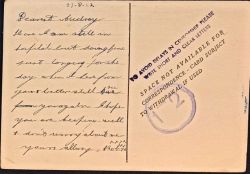 27-8-42
Dearest Audrey
Here I am still in
hospital but doing fine
just longing for the
day when I hear from
your letters still
from you again. I hope
you are keeping well
& don't worry about me
yours always
TO AVOID DELAYS IN CENSORSHIP PLEASE
WRITE SHORT AND CLEAR LETTERS
SPACE NOT AVAILABLE FOR
CORRESPONDENCE. CARD SUBJECT
TO WITHDRAWAL IF USED